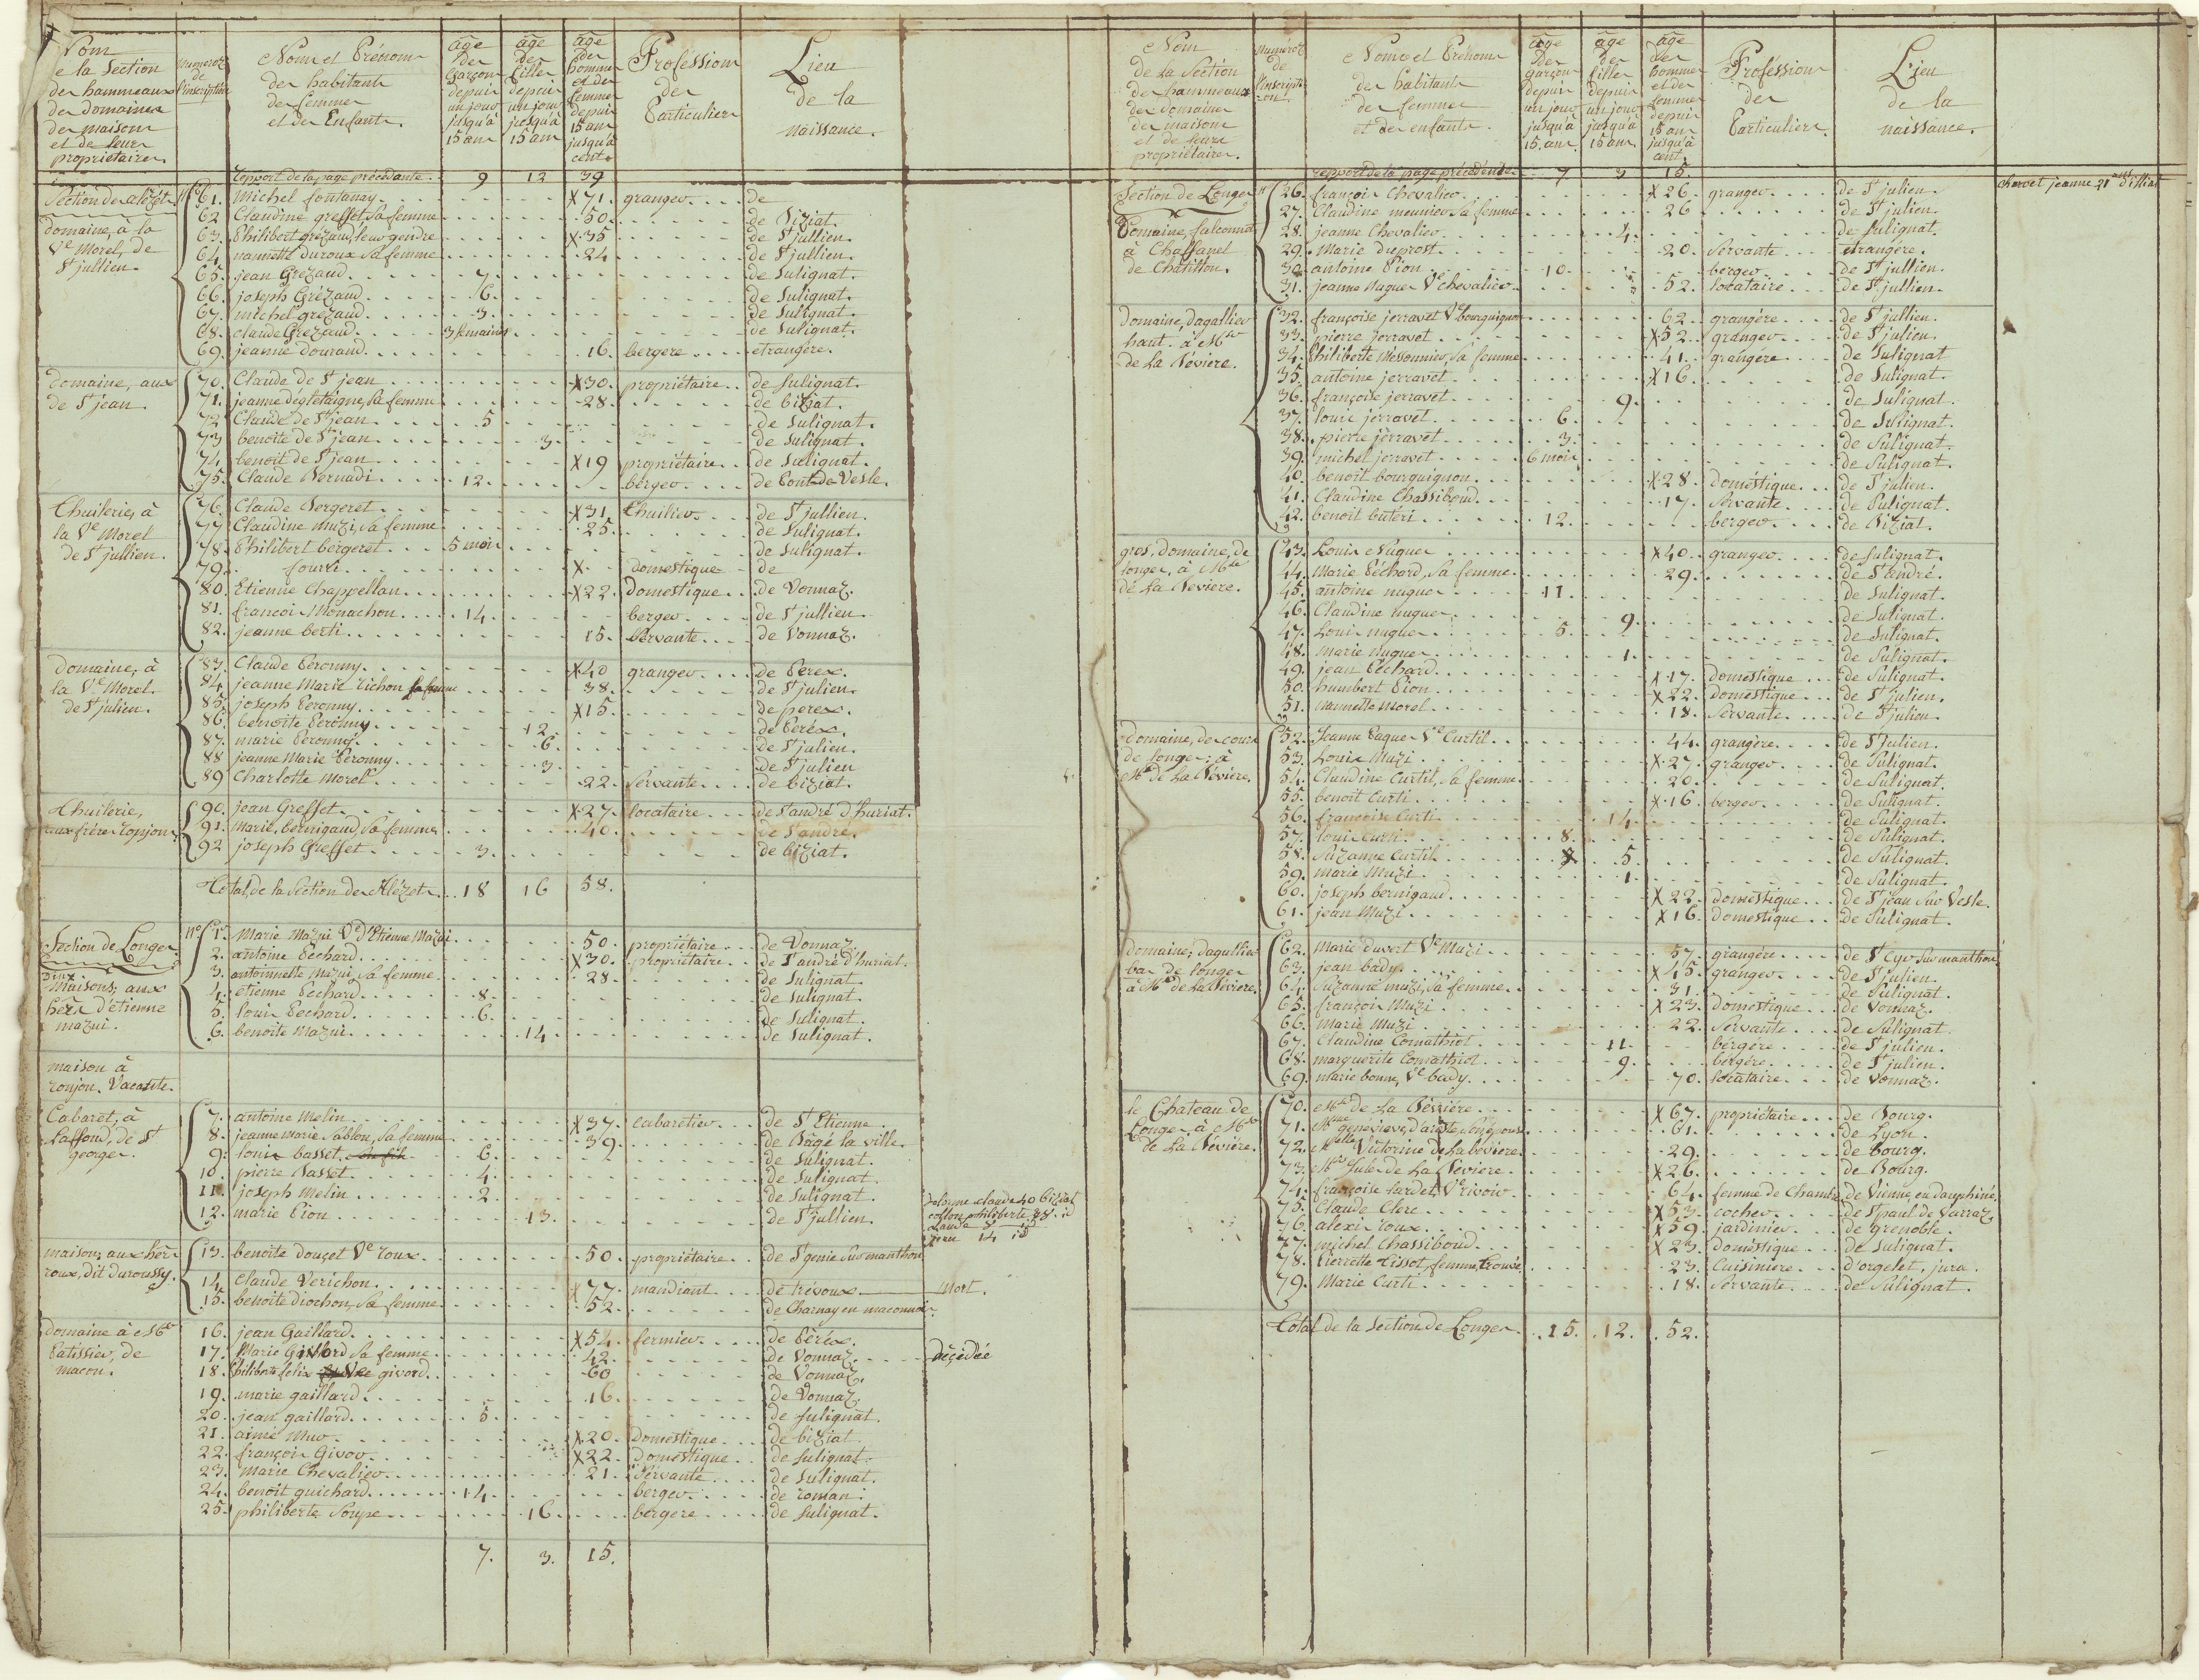 Nom
de la Section
des hammeaux
des domaines
des maisons
et de leurs
propriétaires.
Numéros
de
l'inscription
Nom et Prénom
des habitants
des femmes
et des Enfants.
âge
des
garçons
depuis
un jour
jusqu'à
15 ans
âge
des
filles
depuis
un jour
jusqu'à
15 ans
âge
des
hommes
et des
femmes
depuis
15 ans
jusqu'à
cent
Proféssion
des
Particuliers
Lieu
de la
naissance.
report de la page précédante. 9 12 39
Section des alézets
domaine, à la
Ve Morel, de
St jullien.
No 61. Michel fontanay. X71. granger. de
62 Claudine greffet, sa femme 50. de Biziat.
63. Philibert grézaud, leur gendre X35 de St jullien.
64. nannette duroux sa femme 24 de St jullien.
65. jean Grézaud. 7. de Sulignat.
66. joseph Grézaud. 6. de Sulignat.
67. michel grézaud. 3. de Sulignat.
68. claude Grezaud. 3 semaines de Sulignat.
69. jeanne douraud. 16. bergere. etrangére.
domaine, aux
de St jean.
70. Claude de St jean X30. propriétaire. de Sulignat.
71. jeanne déglétaigne, sa femme 28. de biziat.
72 Claude de St jean 5 de Sulignat.
73 benoite de St jean 3. de Sulignat.
74 benoit de St jean X19 propriétaire. de Sulignat.
75. Claude Bernadi. 12. berger. de Pont de Vesle.
thuilerie, à
la Ve Morel
de St jullien.
76. Claude Bergeret. X31. thuilier. de St jullien.
77 Claudine Muzi, sa femme 25. de Sulignat.
78. Philibert bergeret 5 mois de Sulignat.
79. fourri. X domestique de
80. Etienne Chappellan. X22. Domestique. de Vonnaz.
81. francois Monachon. 14. berger. de St jullien.
82. jeanne berti. 15. Servante. de Vonnaz.
Domaine, à
la Ve Morel.
de St julien.
83. Claude Peronny. X40 granger. de Perex.
84. jeanne Marie tichon sa femme 38. de St julien.
85. joseph Peronny. X15. de perex.
86. benoite Peronny. 12. de Peréx.
87. marie Peronny. 6. de St julien.
88 jeanne Marie Péronny. 3. de St julien
89 Charlotte Morel. 22. Servante. de biziat.
thuilerie,
aux fréres ronjon.
90. jean Greffet. X27. locataire. de St andré d'huriat.
91. Marie bernigaud, sa femme 40. de St andré.
92 joseph Greffet. 3. de biziat.
Total, de la Section des Alézets. 18 16 58.
Section de Longes
Deux
Maisons; aux
hérs d'étienne
mazui.
No 1. Marie Mazui Ve d'Etienne Mazui. 50. propriétaire. de Vonnaz
2. antoine Péchard. X30. propriétaire. de St andré d'huriat.
3. antoinnette Mazui, sa femme. 28. de Sulignat.
4. etienne Pechard. 8. de Sulignat.
5. louis Pechard. 6. de Sulignat.
6. benoite Mazui. 14. de Sulignat.
maison à
ronjon. Vacante.
Cabaret, à
Laffond, de St
georges.
7. antoine Melin. X37. cabaretier. de St Etienne
8. jeanne Marie Sablon, sa femme 39. de Bâgé la ville.
9. louis basset. 6. de Sulignat.
10. pierre Basset. 4. de Sulignat.
11. joseph Melin. 2. de Sulignat.
12. marie Pion. 13. de St jullien.
maison; aux hérs
roux, dit duroussy.
13. benoite douçet Ve roux. 50. propriétaire. de St genis sur manthon
14. Claude Verichon. X77. mandiant de trévoux Mort.
15. benoite diochon, sa femme 52. de Charnay en maconnois.
Domaine à Mr
Patissier, de
macon.
16. jean Gaillard. X54. fermier. de Péréx.
17. Marie Givord sa femme. 42. de Vonnaz. déçédée
18. Philiberte felix Ve givord. 60 de Vonnaz.
19. marie gaillard. 16. de Vonnaz
20. jean gaillard. 5. de sulignat.
21. aimé Mur. X20. Domestique. de biziat
22. françois Givor. X22. Domestique. de sulignat.
23. Marie Chevalier. 21. Servante. de Sulignat.
24. benoit guichard. 14. berger. de roman.
25. philiberte Soupe. 16. bergere. de sulignat.
7. 3. 15.
Nom
de la Section
des hammeaux
des domaines
des maisons
et de leurs
propriétaires.
Numéros
de
l'inscripti-
on.
Nom et Prénom
des habitants
des femmes
et des enfants.
âge
des
garçons
depuis
un jour
jusqu'à
15. ans.
âge
des
filles
depuis
un jour
jusqu'à
15 ans.
âge
des
hommes
et des
femmes
depuis
15 ans
jusqu'à
cent.
Proféssion
des
Particuliers.
Lieu
de la
naissance.
report de la page précédénte. 7 3 15.
Section de Longes
Domaine, falconnet
à Chaffanel
de Chatillon.
26. françois Chevalier. X26. granger. de St julien.
27. Claudine meunier sa femme 26 de St julien.
28. jeanne Chevalier. 4. de Sulignat.
29. Marie duprost. 20. Servante étrangére.
30. antoine Pion. 10. berger. de St jullien.
31. jeanne Nagues Ve Chevalier. 52. locataire. de St jullien.
domaine, dagallier
haut. à Mr
de La Bévière.
32. françoise jerravet Ve bourguignon 62. grangére. de St jullien.
33. pierre jerravet. X52. granger. de St julien.
34. Philiberte Messonnier, sa femme 41. grangére de Sulignat
35. antoine jerravet. X16. de Sulignat.
36. françoise jerravet. 9. de Sulignat.
37. louis jerravet. 6. de Sulignat.
38. pierre jérravet. 3. de Sulignat.
39. michel jerravet. 6 mois de Sulignat.
40. benoit bourguignon. X28. doméstique. de St julien.
41. Claudine Chassiboud. 17. Servante. de Sulignat.
42. benoit butéri. 12. berger. de Biziat.
gros, domaine, de
longes, à Mr
de La Beviere.
43. Louis Nugues X40. granger. de Sulignat.
44. Marie Péchard, sa femme. 29. de St andré.
45. antoine nugues 11. de Sulignat.
46. Claudine nugues. 9. de Sulignat.
47. Louis nugues. 5. de Sulignat.
48. marie nugues. 1. de Sulignat.
49. jean Péchard. X17. Doméstique de Sulignat.
50. humbert Pion. X22. Doméstique. de St julien.
51. Nannette Morel. 18. Servante. de St julien.
domaine, des cours
de longes, à
Mr de La Bévière.
52. Jeanne Pagues Ve Curtil. 44. grangére. de St Julien.
53. Louis Muzi. X27. granger. de Sulignat.
54. Claudine Curtil, sa femme. 20. de Sulignat.
55. benoit Curti. X16. berger. de Sulignat.
56. françoise Curti. 14. de Sulignat.
57. louis Curti. 8. de Sulignat.
58. Suzanne Curtil. 5. de Sulignat.
59. marie Muzi. 1. de Sulignat.
60. joseph bernigaud. X22. doméstique. de St jean sur Vesle.
61. jean Muzi. X16. Doméstique. de Sulignat.
domaine; dagallier
bas de longes
à Mr de La Béviere.
62. Marie duvert Ve Muzi. 57. grangére. de St Cyr sur manthon
63. jean bady. X45. granger. de St julien.
64. Suzanne muzi, sa femme. 31. de Sulignat.
65. françois Muzi. X23. domestique. de Vonnaz.
66. Marie Muzi. 22. Servante. de Sulignat.
67. Claudine Comathiot. 11. bérgére. de St julien.
68. marguerite Comathiot. 9. bérgére. de St julien.
69. marie bonne, Ve bady. 70. locataire. de Vonnaz.
le Chateau de
Longes à Mr
de La Béviére.
70. Mr de La Béviére. X67. propriétaire. de Bourg.
71. Mme genevieve, d'areste son épouse. 61. de Lyon.
72. Melle Victorine de La beviere. 29. de bourg.
73. Mr Jules de La Beviere. X26. de Bourg.
74. françoise tardet, Ve rivoir. 64. femme de Chambre de Vienne, en dauphiné.
75. Claude Clerc. X53. cocher. de St paul de Varraz
76. alexis roux. X59. jardinier. de grenoble.
77. michel Chassiboud. X23. doméstique. de Sulignat.
78. Pierrette tissot femme trouvé 23. Cuisiniere. d'orgelet, jura.
79. Marie Curti. 18. Servante. de Sulignat.
Total de la Section de Longes. 15. 12. 52.